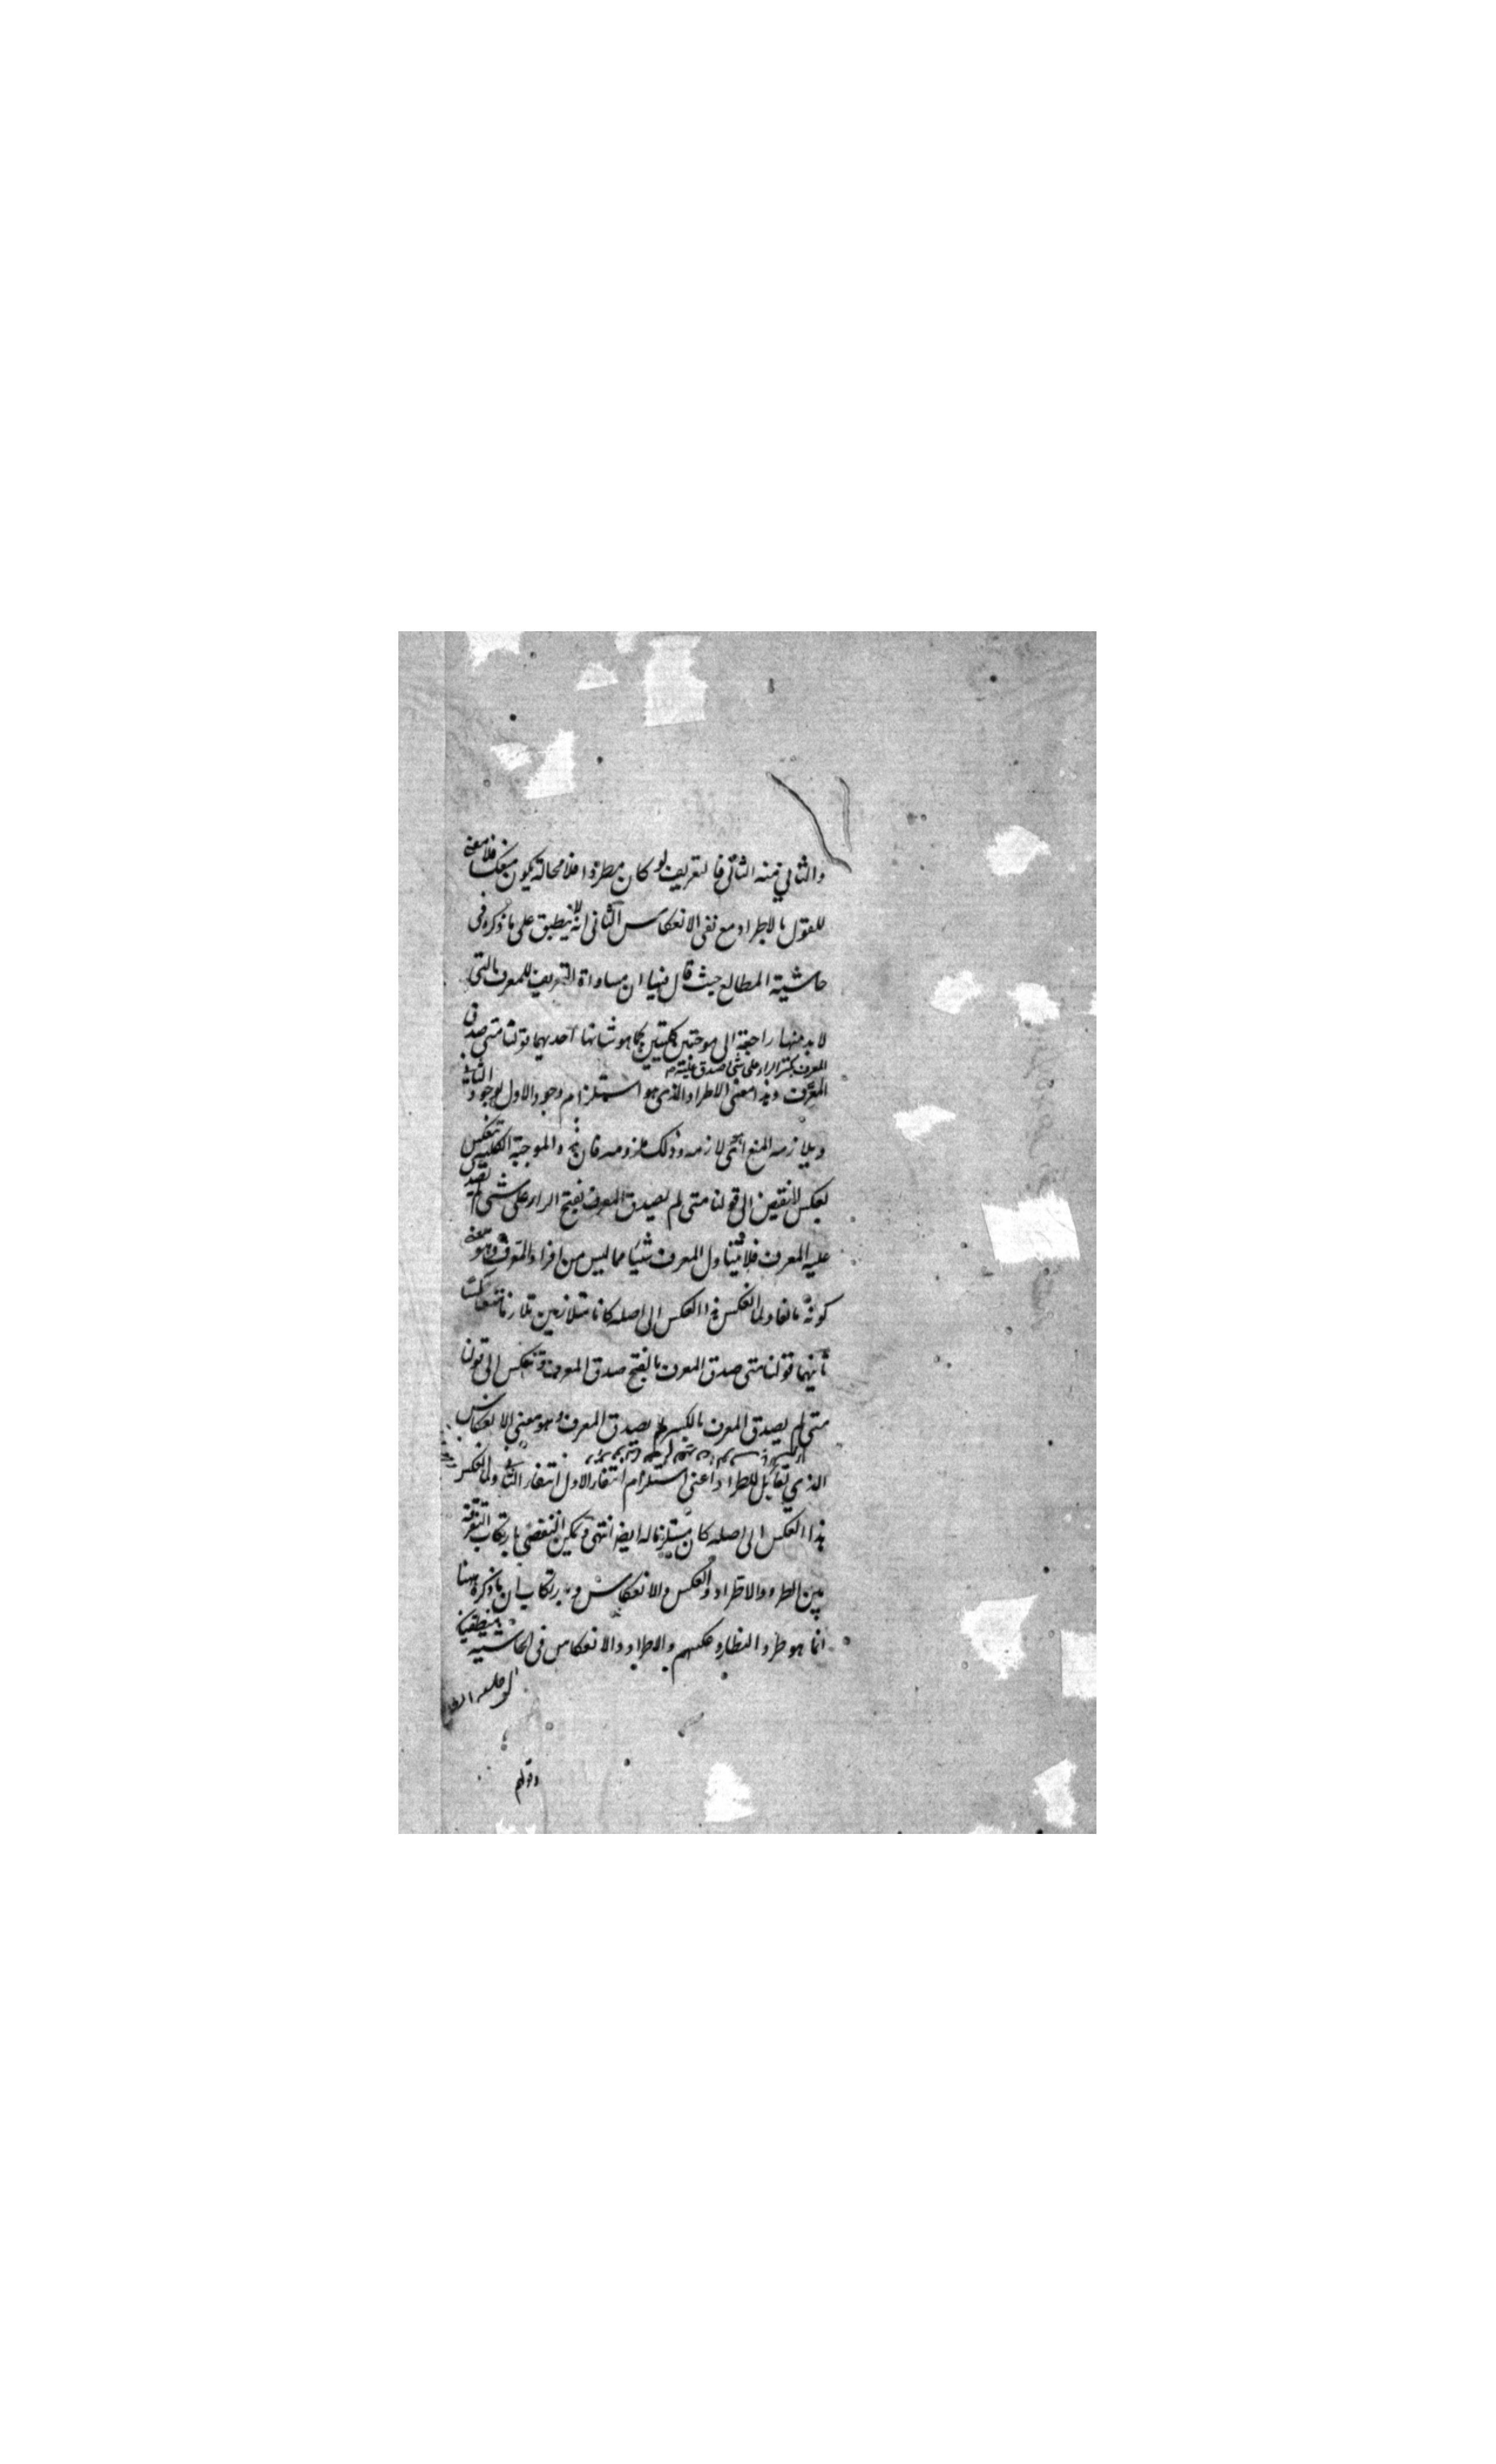 والثاني منه الثاني فالتعريف لو كان مطردا فلا محالة يكون منعكسا فلا معنى
للقول بالاطراد مع نفي الانعكاس الثاني انه لا ينطبق على ما ذكره في
حاشية المطالع حيث قال فيها ان مساواة التعريف للمعرف التي
لا بد منها راجعة الى موجبتين كليتين كما هو شانها احديهما قولنا متى صدق
المعرف بكسر الراء على شئ صدق عليه
المعرف وهذا معنى الاطراد الذي هو استلزام وجود الاول لوجود الثاني
ويلازمه المنع لازمه وذلك ملزومه فان هذه الموجبة الكلية تنعكس
بعكس النقيض الى قولنا متى لم يصدق المعرف بفتح الراء على شئ لم يصدق
عليه المعرف فلا يتناول المعرف شيئا مما ليس من افراد المعرف وهو معنى
كونه مانعا ولما انعكس هذا العكس الى اصله كانا متلازمين تلازما متعاكسا
ثانيهما قولنا متى صدق المعرف بالفتح صدق المعرف وتنعكس الى قولنا
متى لم يصدق المعرف بالكسر لم يصدق المعرف وهو معنى الانعكاس
الذي يقابل الاطراد اعني استلزام انتفاء الاول انتفاء الثاني ولما انعكس
هذا العكس الى اصله كان مستلزما له ايضا انتهى ويمكن التفصي بارتكاب التفرقة
بين الطرد والاطراد والعكس والانعكاس وبارتكاب ان ما ذكره ههنا
انما هو طرد النظار وعكسهم والاطراد والانعكاس في الحاشية
وقولهم